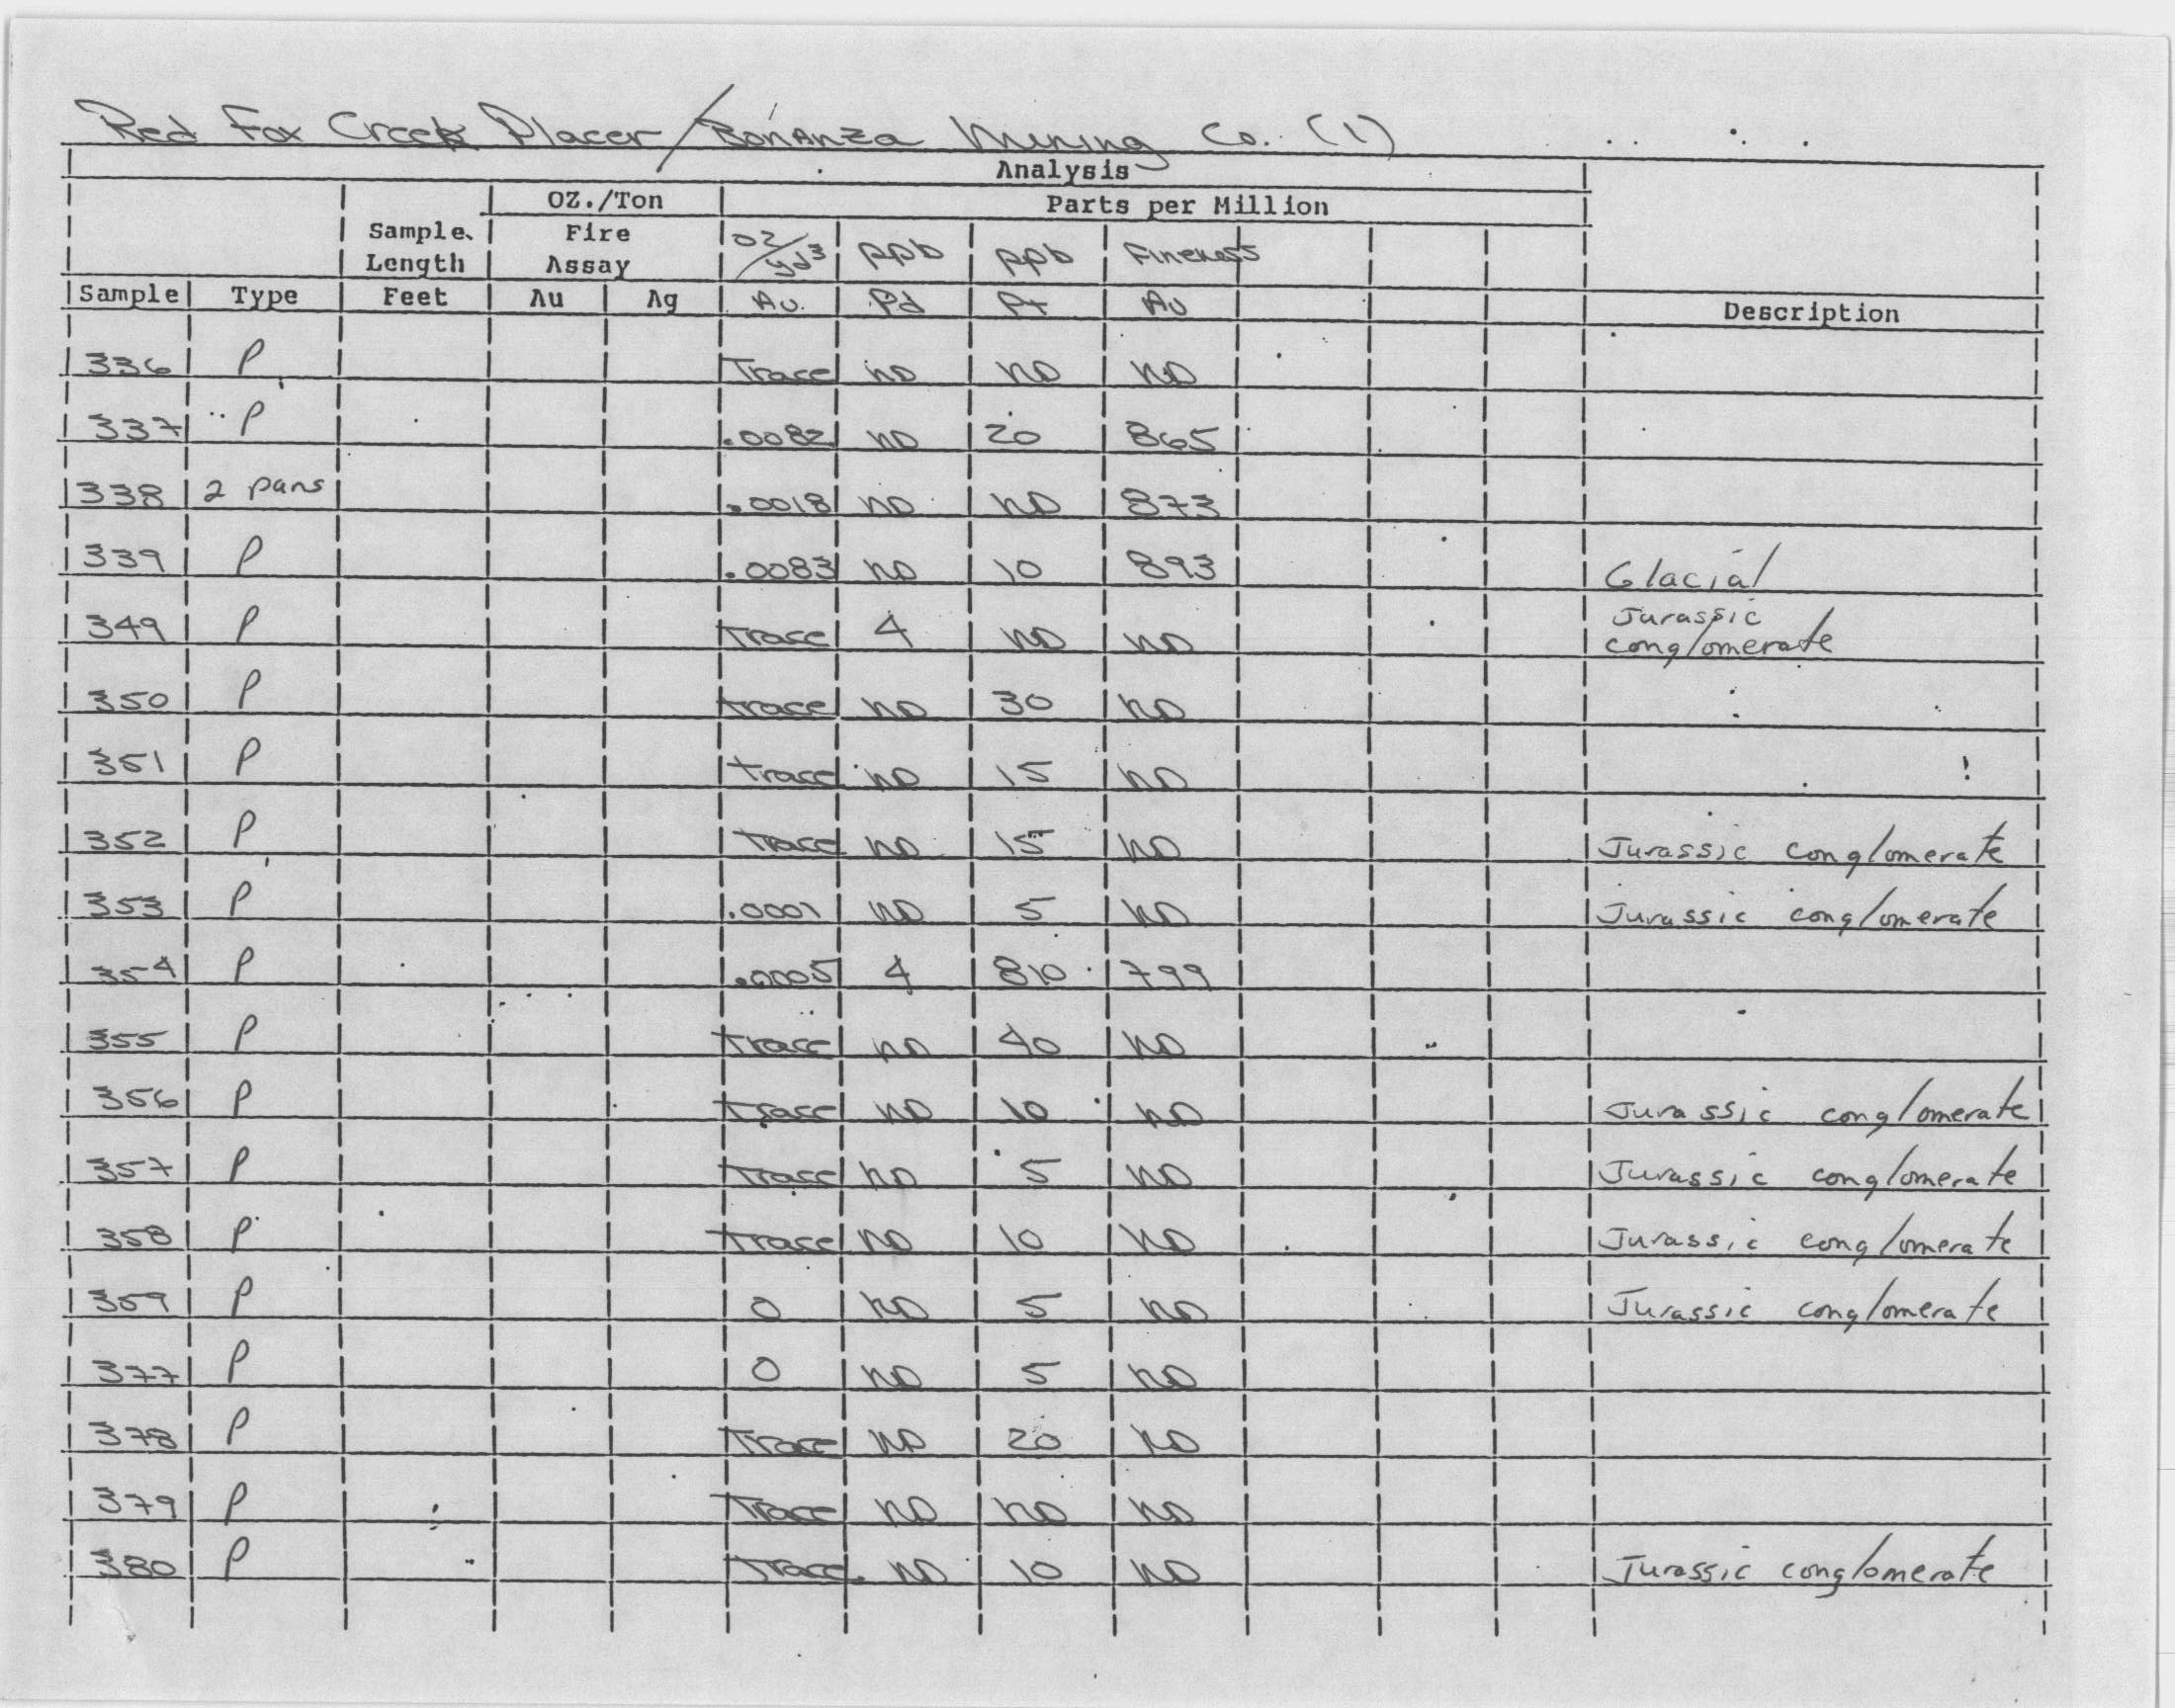 Red Fox Creek Placer/Bonanza Mining Co. (1)
Analysis
OZ./Ton Parts per Million
Sample Fire oz/yd3 ppb ppb Fineness
Length Assay
Sample Type Feet Au Ag Au. Pd Pt Au Description
336 P Trace ND ND ND
337 P .0082 ND 20 865
338 2 pans .0018 ND ND 873
339 P .0083 ND 10 893 Glacial
349 P trace 4 ND ND Jurassic
conglomerate
350 P trace ND 30 ND
351 P trace ND 15 ND
352 P trace ND 15 ND Jurassic conglomerate
353 P .0001 ND 5 ND Jurassic conglomerate
354 P .0005 4 810 799
355 P trace ND 40 ND
356 P trace ND 10 ND Jurassic conglomerate
357 P trace ND 5 ND Jurassic conglomerate
358 P trace ND 10 ND Jurassic conglomerate
359 P 0 ND 5 ND Jurassic conglomerate
377 P 0 ND 5 ND
378 P Trace ND 20 ND
379 P Trace ND ND ND
380 P Trace ND 10 ND Jurassic conglomerate